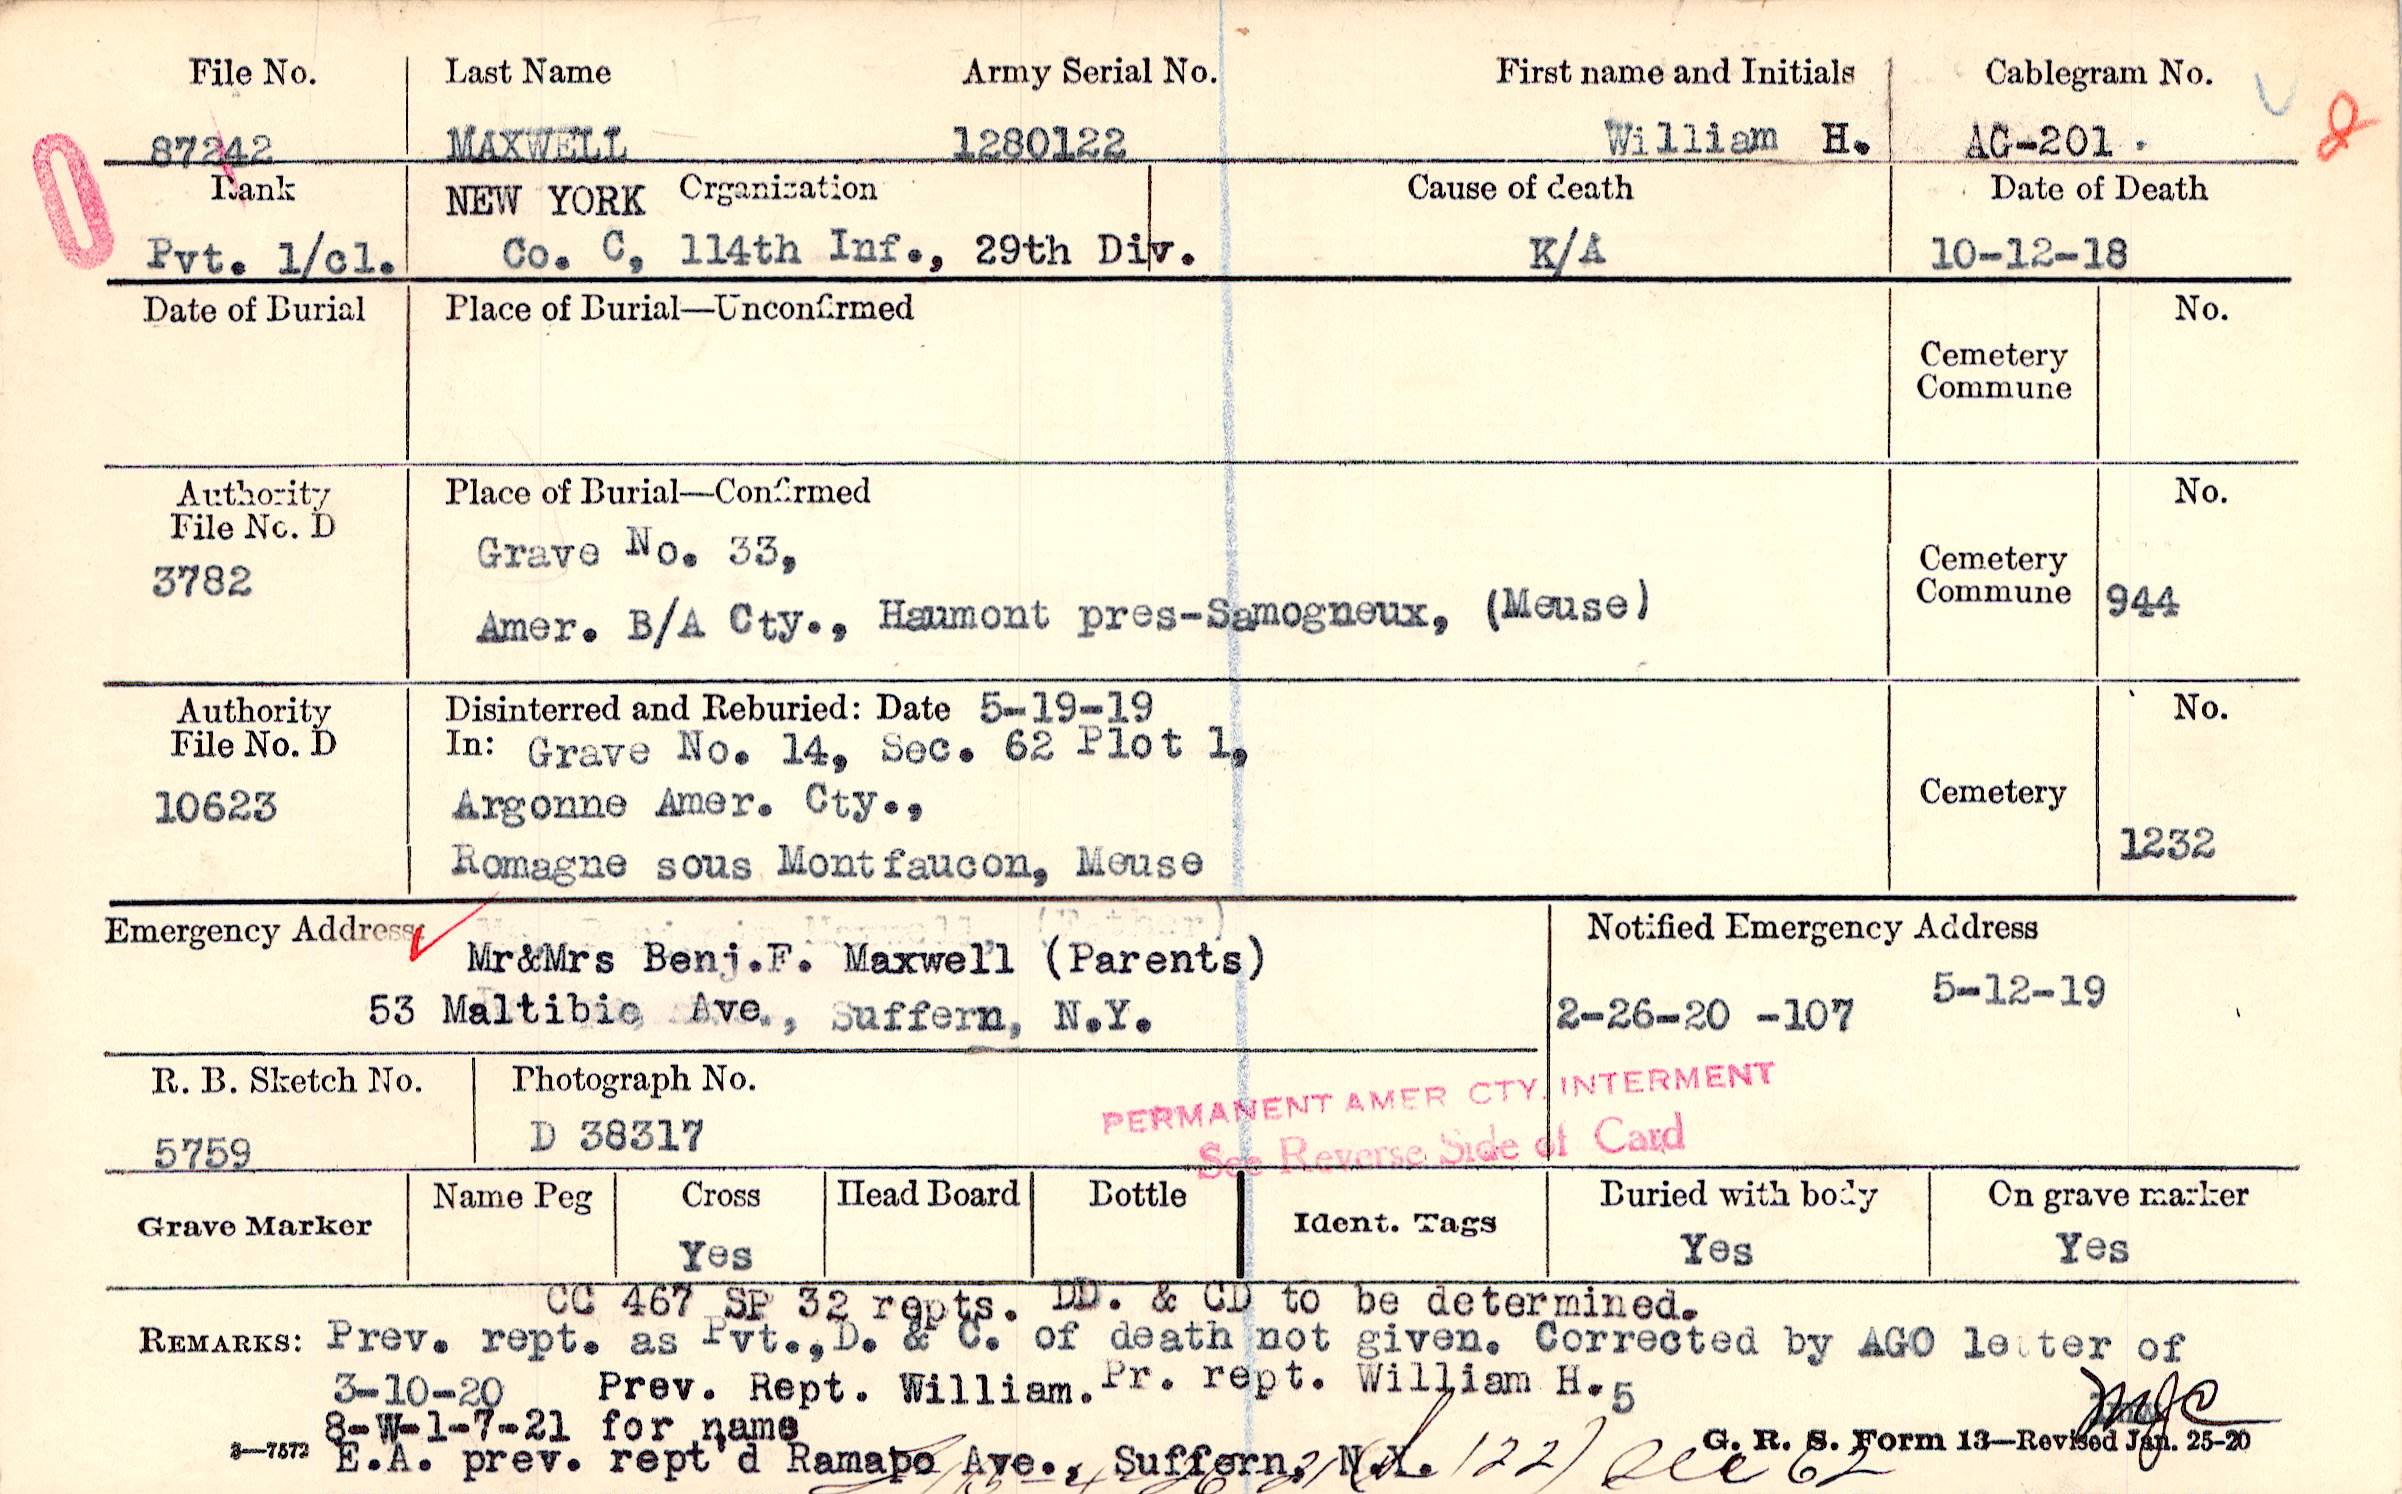 File No. Last Name Army Serial No. First name and Initials Cablegram No.
8
87242 MAXWELL 1280122 William H. AG-201 .
0
Rank NEW YORK Organization Cause of death Date of Death
Pvt. 1/cl. Co. C, 114th Inf., 29th Div. K/A 10-12-18
Date of Burial Place of Burial—Unconfirmed No.
Cemetery
Commune
Authority Place of Burial—Confirmed No.
File No. D
Grave No. 33,
3782 Cemetery
Commune 944
Amer. B/A Cty., Haumont pres-Samogneux, (Meuse)
Authority Disinterred and Reburied: Date 5-19-19 No.
File No. D In: Grave No. 14, Sec. 62 Plot 1,
10623 Argonne Amer. Cty., Cemetery
Romagne sous Montfaucon, Meuse 1232
Emergency Address: Notified Emergency Address
Mr&Mrs Benj.F. Maxwell (Parents)
5-12-19
53 Maltibie Ave., Suffern, N.Y. 2-26-20 -107
R. B. Sketch No. Photograph No.
PERMANENT AMER CTY. INTERMENT
5759 D 38317 See Reverse Side of Card
Grave Marker Name Peg Cross Head Board Bottle Ident. Tags Buried with body On grave marker
Yes Yes Yes
CC 467 SP 32 repts. DD. & CD to be determined.
REMARKS: Prev. rept. as Pvt.,D. & C. of death not given. Corrected by AGO letter of
3-10-20 Prev. Rept. William. Pr. rept. William H. 5
8-W-1-7-21 for name
3—7573 E.A. prev. rept'd Ramapo Ave., Suffern, N.Y. 122) Dec 62
G. R. S. Form 13—Revised Jan. 25-20